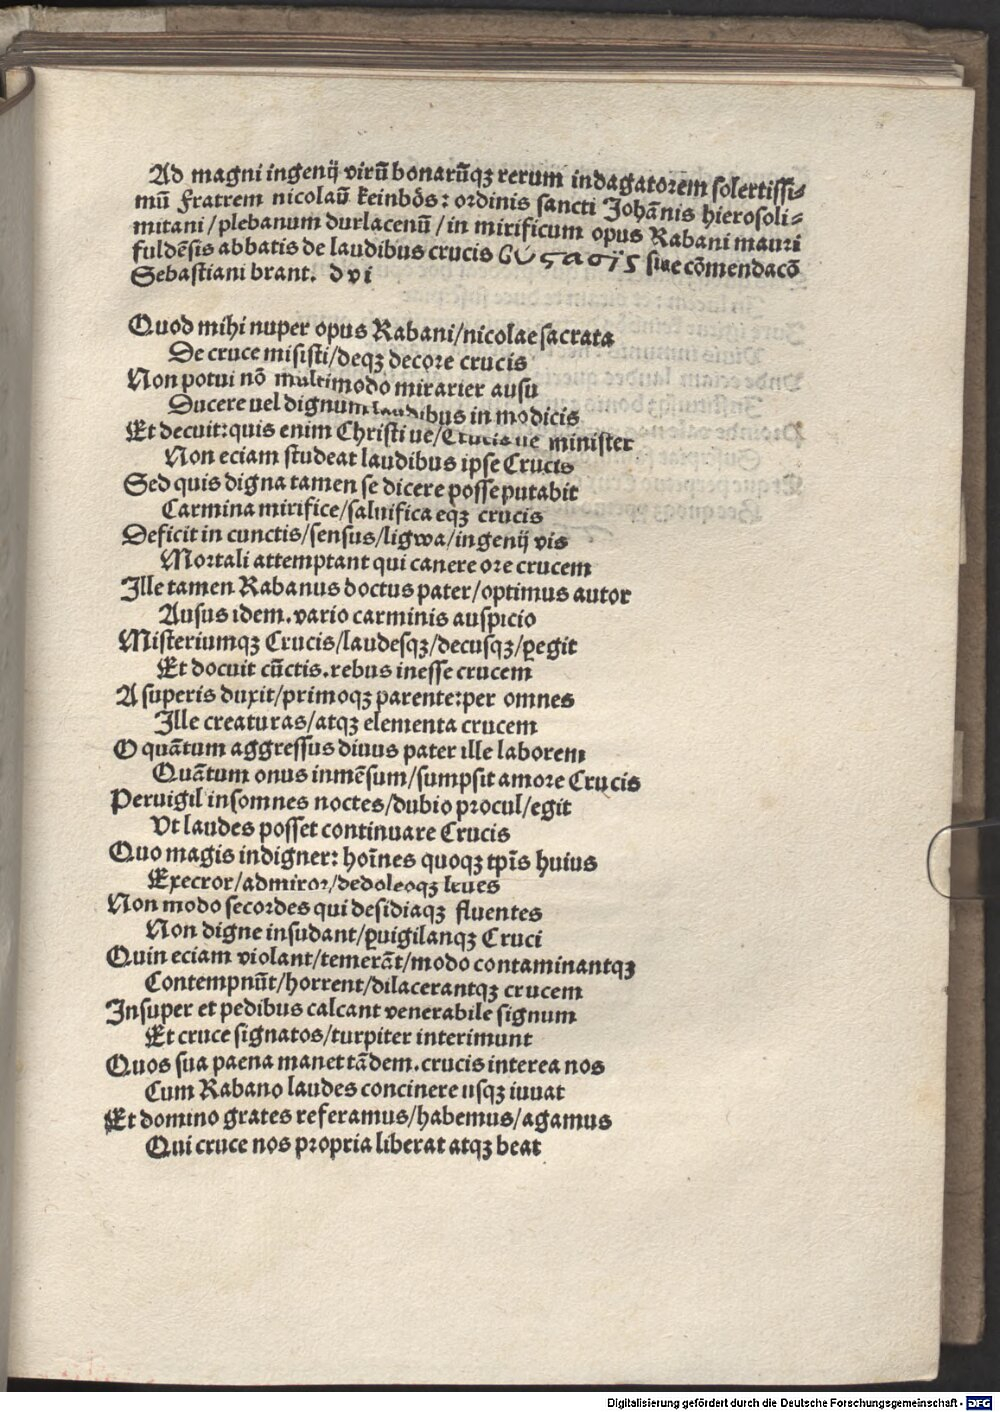 Ad magni ingenij virū bonarūqꝫ rerum indagatorem solertissi⸗
mū Fratrem nicolaū keinbös: ordinis sancti Johānis hierosoli⸗
mitani/plebanum durlacenū/in mirificum opus Rabani mauri
fuldēsis abbatis de laudibus crucis siue cōmendacō
Sebastiani brant. d v i
Quod mihi nuper opus Rabani/nicolae sacrata
De cruce misisti/deqꝫ decore crucis
Non potui nō multimodo mirarier ausu
Ducere uel dignum laudibus in modicis
Et decuit: quis enim Christi ue/Crucis ue minister
Non eciam studeat laudibus ipse Crucis
Sed quis digna tamen se dicere posse putabit
Carmina mirifice/saluifica eqꝫ crucis
Deficit in cunctis/sensus/ligwa/ingenij vis
Mortali attemptant qui canere ore crucem
Ille tamen Rabanus doctus pater/optimus autor
Ausus idem.vario carminis auspicio
Misteriumqꝫ Crucis/laudesqꝫ/decusqꝫ/ꝑegit
Et docuit cūctis.rebus inesse crucem
A superis duxit/primoqꝫ parente:per omnes
Ille creaturas/atqꝫ elementa crucem
O quātum aggressus diuus pater ille laborem
Quātum onus inmēsum/sumpsit amore Crucis
Peruigil insomnes noctes/dubio procul/egit
Vt laudes posset continuare Crucis
Quo magis indigner: hoīnes quoqꝫ tpīs huius
Execror/admiror/dedoleoqꝫ leues
Non modo secordes qui desidiaqꝫ fluentes
Non digne insudant/ꝑuigilanqꝫ Cruci
Quin eciam violant/temerāt/modo contaminantqꝫ
Contempnūt/horrent/dilacerantqꝫ crucem
Insuper et pedibus calcant venerabile signum
Et cruce signatos/turpiter interimunt
Quos sua paena manet tādem.crucis interea nos
Cum Rabano laudes concinere usqꝫ iuuat
Et domino grates referamus/habemus/agamus
Qui cruce nos propria liberat atqꝫ beat
Digitalisierung gefördert durch die Deutsche Forschungsgemeinschaft - DFG